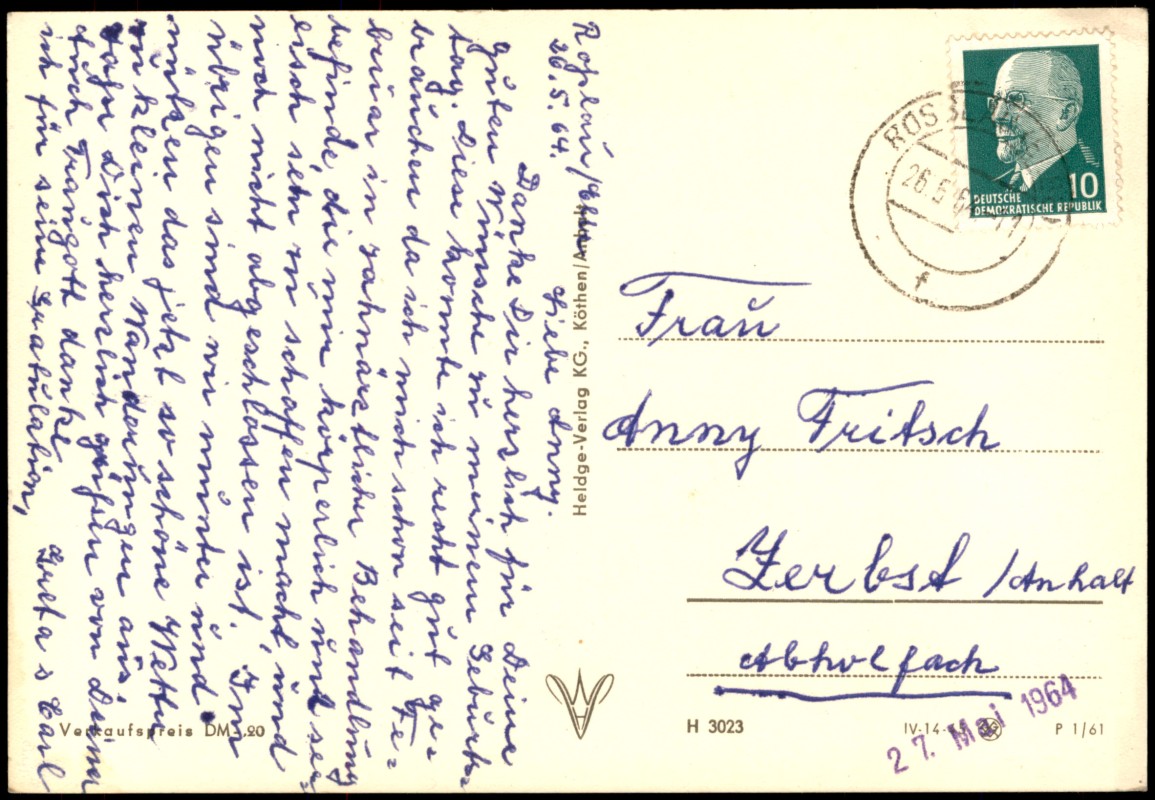 Roßlau/Elbe
26.5.64.
Liebe Anny.
Danke Dir herzlich für Deine
guten Wünsche zu meinem Geburts=
tag. Diese konnte ich recht gut ge=
brauchen da ich mich schon seit Fe=
bruar in zahnärztlicher Behandlung
befinde, die mir körperlich und see=
lisch sehr zu schaffen macht, und
noch nicht abgeschlossen ist. Im
übrigen sind wir munter und
nützen das jetzt so schöne Wetter
zu kleinen Wanderungen aus.
Laß Dich herzlich grüßen von Deiner
Auch Traugott danke
ich für seine Gratulation,
Greta & Carl
Verkaufspreis DM -.20
Heldge-Verlag KG., Köthen/Anhalt
ROSSLAU
26.5.64
f
10
DEUTSCHE
DEMOKRATISCHE REPUBLIK
Frau
Anny Fritsch
Zerbst /Anhalt
Abholfach
27. Mai 1964
H 3023
IV-14-
P 1/61